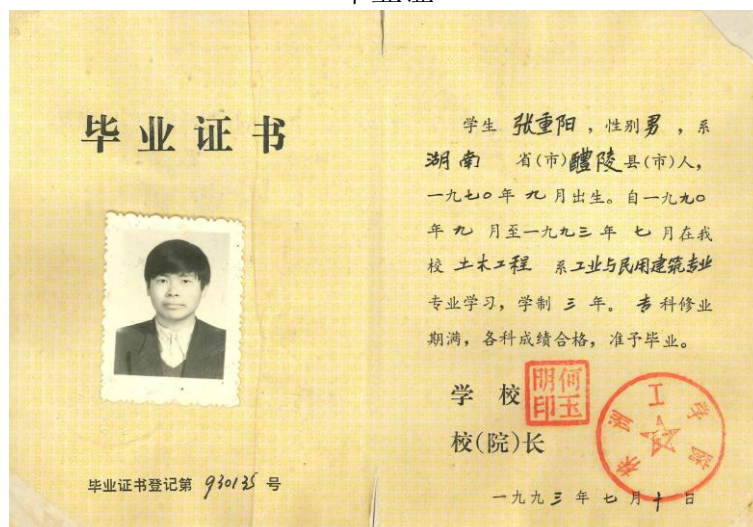 毕业证书
毕业证书登记第 930135 号
学生 张重阳 ，性别男 ，系
湖南 省(市)醴陵县(市)人，
一九七〇年 九 月出生。自一九九〇
年 九 月至一九九三 年 七 月在我
校 土木工程 系工业与民用建筑专业
专业学习，学制 三 年。 专 科修业
期满，各科成绩合格，准予毕业。
学 校
校(院)长
何玉明印
一九九三 年 七 月 十 日